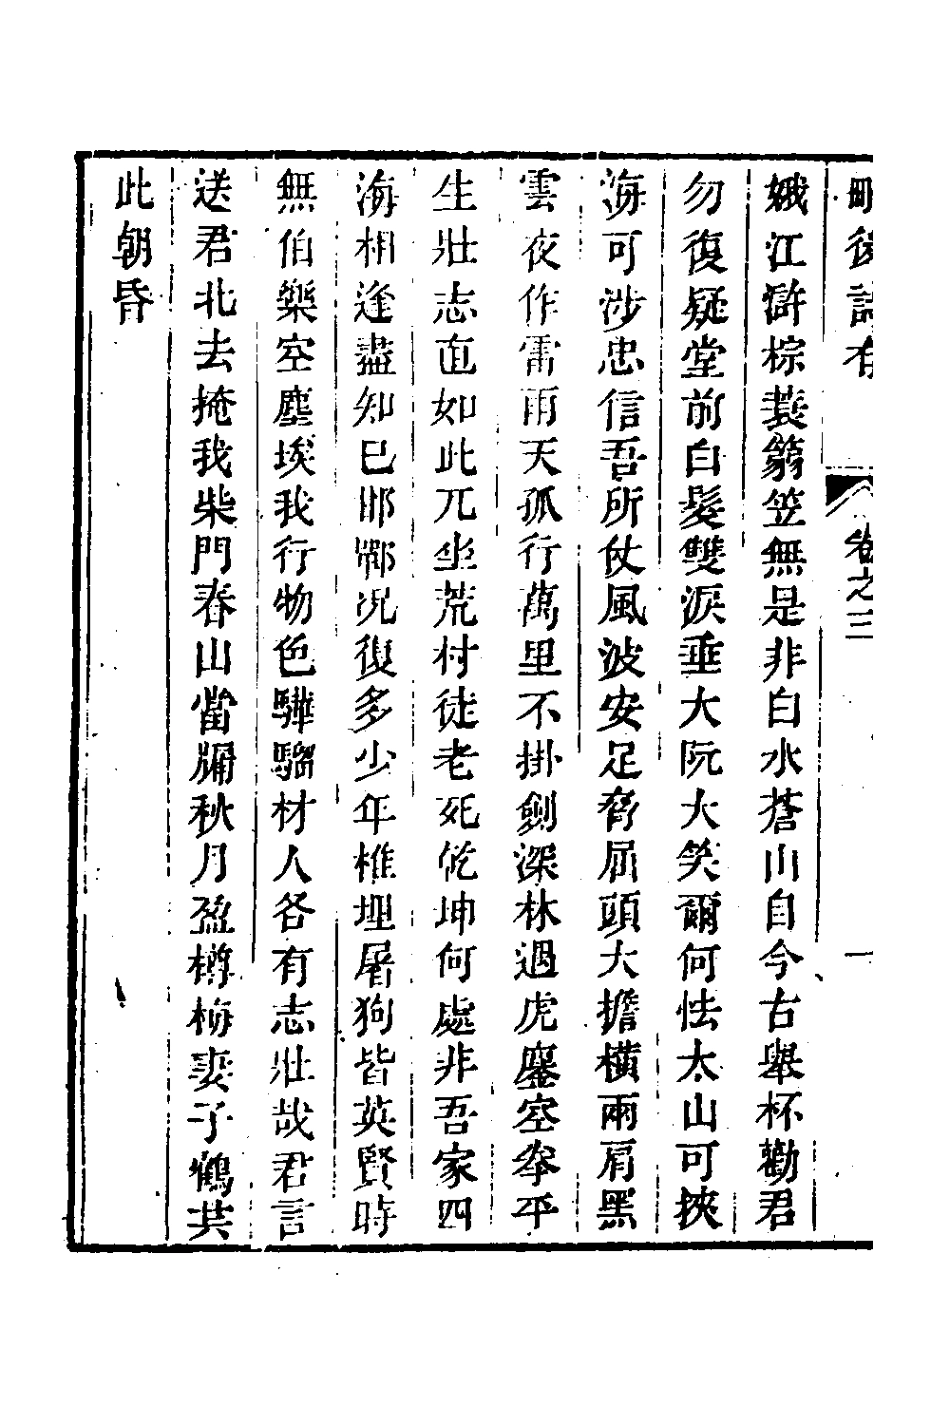 刪後詩存 卷之三 一
娥江滸棕蓑篛笠無是非白水蒼山自今古舉杯勸君
勿復疑堂前白髮雙淚垂大阮大笑爾何怯太山可挾
海可涉忠信吾所仗風波安足脅屈頭大擔橫兩肩黑
雲夜作雷雨天孤行萬里不掛劍深林過虎鏖空拳平
生壯志直如此兀坐荒村徒老死乾坤何處非吾家四
海相逢盡知已邯鄲况復多少年椎埋屠狗皆英賢時
無伯樂空塵埃我行物色驊騮材人各有志壯哉君言
送君北去掩我柴門春山當牖秋月盈樽梅妻子鶴共
此朝昏